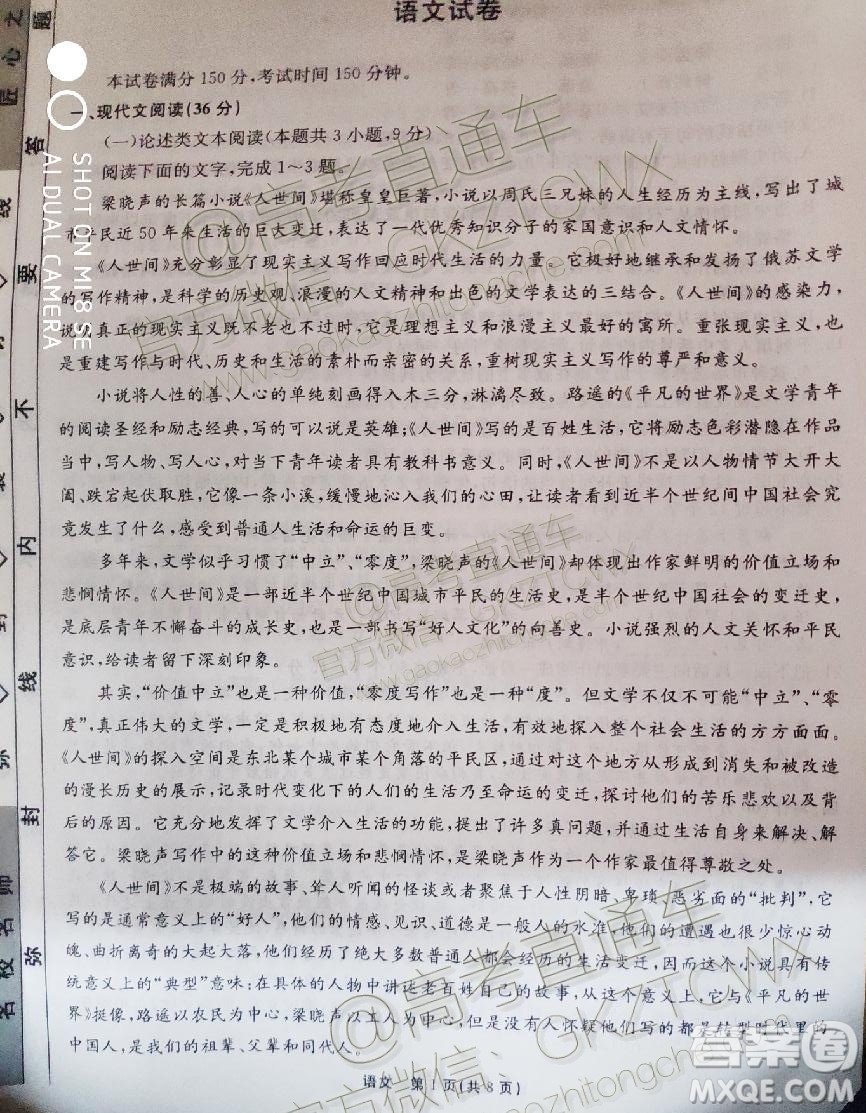 语文试卷
本试卷满分150分,考试时间150分钟。
一、现代文阅读(36分)
(一)论述类文本阅读(本题共3小题,9分)
阅读下面的文字,完成1~3题。
梁晓声的长篇小说《人世间》堪称皇皇巨著,小说以周氏三兄妹的人生经历为主线,写出了城
市平民近50年来生活的巨大变迁,表达了一代优秀知识分子的家国意识和人文情怀。
《人世间》充分彰显了现实主义写作回应时代生活的力量。它极好地继承和发扬了俄苏文学
的写作精神,是科学的历史观、浪漫的人文精神和出色的文学表达的三结合。《人世间》的感染力,
说明真正的现实主义既不老也不过时,它是理想主义和浪漫主义最好的寓所。重张现实主义,也
是重建写作与时代、历史和生活的素朴而亲密的关系,重树现实主义写作的尊严和意义。
小说将人性的善、人心的单纯刻画得入木三分,淋漓尽致。路遥的《平凡的世界》是文学青年
的阅读圣经和励志经典,写的可以说是英雄;《人世间》写的是百姓生活,它将励志色彩潜隐在作品
当中,写人物、写人心,对当下青年读者具有教科书意义。同时,《人世间》不是以人物情节大开大
阖、跌宕起伏取胜,它像一条小溪,缓慢地沁入我们的心田,让读者看到近半个世纪间中国社会究
竟发生了什么,感受到普通人生活和命运的巨变。
多年来,文学似乎习惯了“中立”、“零度”,梁晓声的《人世间》却体现出作家鲜明的价值立场和
悲悯情怀。《人世间》是一部近半个世纪中国城市平民的生活史,是半个世纪中国社会的变迁史,
是底层青年不懈奋斗的成长史,也是一部书写“好人文化”的向善史。小说强烈的人文关怀和平民
意识,给读者留下深刻印象。
其实,“价值中立”也是一种价值,“零度写作”也是一种“度”。但文学不仅不可能“中立”、“零
度”,真正伟大的文学,一定是积极地有态度地介入生活,有效地探入整个社会生活的方方面面。
《人世间》的探入空间是东北某个城市某个角落的平民区,通过对这个地方从形成到消失和被改造
的漫长历史的展示,记录时代变化下的人们的生活乃至命运的变迁,探讨他们的苦乐悲欢以及背
后的原因。它充分地发挥了文学介入生活的功能,提出了许多真问题,并通过生活自身来解决、解
答它。梁晓声写作中的这种价值立场和悲悯情怀,是梁晓声作为一个作家最值得尊敬之处。
《人世间》不是极端的故事、耸人听闻的怪谈或者聚焦于人性阴暗、卑琐、恶劣面的“批判”,它
写的是通常意义上的“好人”,他们的情感、见识、道德是一般人的水准,他们的遭遇也很少惊心动
魄、曲折离奇的大起大落,他们经历了绝大多数普通人都会经历的生活变迁,因而这个小说具有传
统意义上的“典型”意味:在具体的人物中讲述老百姓自己的故事,从这个意义上,它与《平凡的世
界》挺像,路遥以农民为中心,梁晓声以工人为中心,但是没有人怀疑他们写的都是转型时代里的
中国人,是我们的祖辈、父辈和同代人。
语文 第1页(共8页)
匠心之题
名校名师
弥封线内不要答
SHOT ON MI 8 SE
AI DUAL CAMERA
@高考直通车
官方微信:GKZTCWX
www.gaokaozhitongche.com
答案圈
MXQE.COM